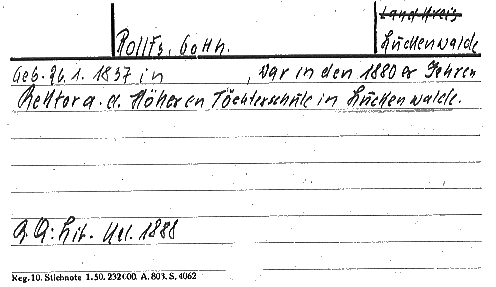 Land Kreis
Rolffs, Joh.
Luckenwalde
Geb. 26.1. 1837 in , war in den 1880er Jahren
Rektor a. d. Höheren Töchterschule in Luckenwalde.
Lit. Kal. 1888
Keg. 10. Stichnote 1. 50. 232000. A. 803. S. 4062